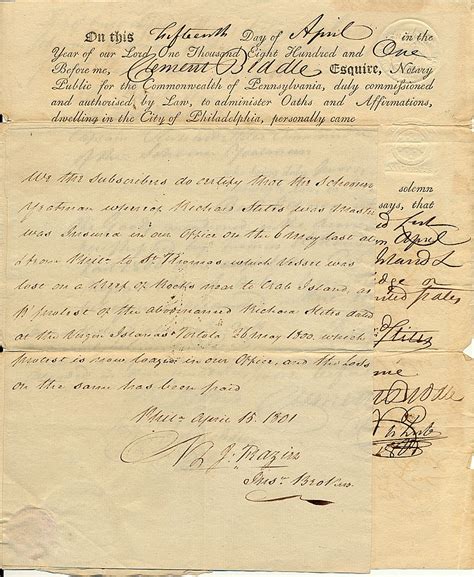 On this fifteenth Day of April in the
Year of our Lord One Thousand Eight Hundred and One
Before me, Clement Biddle Esquire, Notary
Public for the Commonwealth of Pennsylvania, duly commissioned
and authorised by Law, to administer Oaths and Affirmations,
dwelling in the City of Philadelphia, personally came
We the Subscribers do certify that the Schooner
whereof Richard Stites was Master
was Insured in our Office on the 6 May last
from Phila to St Thomas, which Vessel was
lost on a Reef of Rocks near to Crab Island, as
protest of the abovenamed Richard Stites dated
at the Virgin Islands Tortola 26 May 1800, which
protest is now in our Office, and the Loss
on the same has been paid
Phila April 15. 1801
Insce Brokers
solemn
says, that
last
April
Island
or
States
Stites
me
Biddle